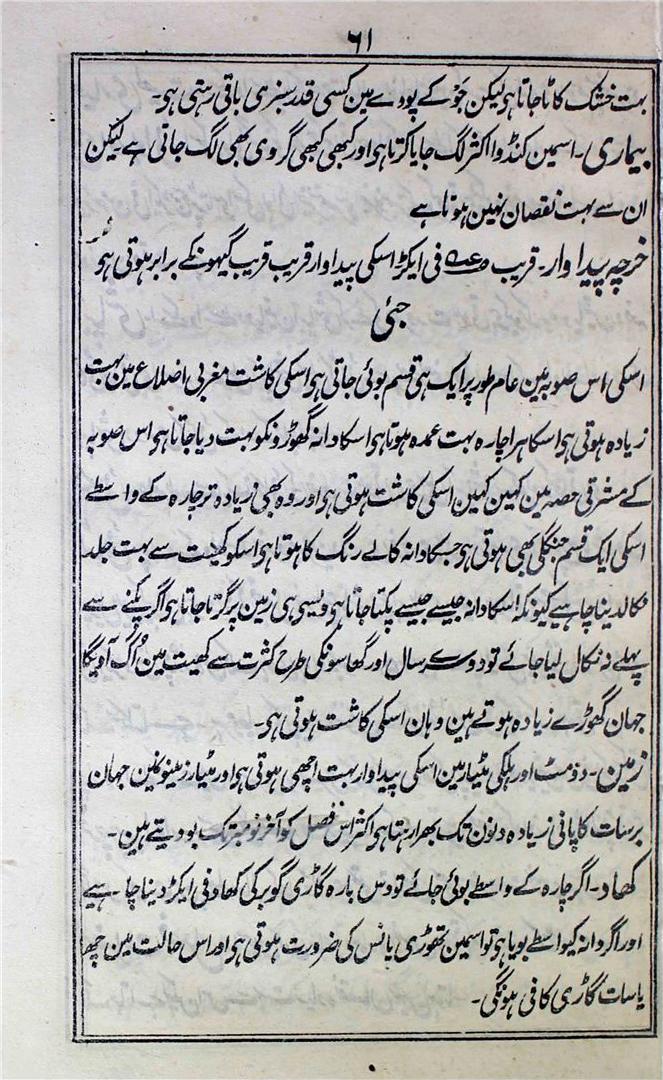 ۶۱
بہت خشک کاٹا جاتا ہو لیکن جَو کے پودے مین کسی قدر سبزی باقی رہتی ہو۔
بیماری۔ اسمین کنڈوا اکثر لگ جایا کرتا ہو اور کبھی کبھی گروی بھی لگ جاتی ہے لیکن
ان سے بہت نقصان نہین ہوتا ہے
خرچہ پیداوار۔ قریب فی ایکڑ اسکی پیداوار قریب قریب گیہونکے برابر ہوتی ہو
جئی
اسکی اس صوبہ مین عام طور پر ایک ہی قسم بوئی جاتی ہو اسکی کاشت مغربی اضلاع مین بہت
زیادہ ہوتی ہو اسکا ہرا چارہ بہت عمدہ ہوتا ہو اسکا دانہ گھوڑونکو بہت دیا جاتا ہو اس صوبہ
کے مشرقی حصہ مین کہین کہین اسکی کاشت ہوتی ہو اور وہ بھی زیادہ تر چارہ کے واسطے
اسکی ایک قسم جنگلی بھی ہوتی ہو جسکا دانہ کالے رنگ کا ہوتا ہو اسکو کھیت سے بہت جلد
نکالدینا چاہیے کیونکہ اسکا دانہ جیسے جیسے پکتا جاتا ہو ویسی ہی زمین پر گرتا جاتا ہو اگر پکنے سے
پہلے نہ نکال لیا جائے تو دوسرے سال اور گھاسونکی طرح کثرت سے کھیت مین اُگ آویگا
جہان گھوڑے زیادہ ہوتے ہین وہان اسکی کاشت ہوتی ہو۔
زمین۔ دومٹ اور ہلکی مٹیار مین اسکی پیداوار بہت اچھی ہوتی ہو اور مٹیار زمینونمین جہان
برسات کا پانی زیادہ دنون تک بھرا رہتا ہو اکثر اس فصل کو آخر نومبر تک بو دیتے ہین۔
کھاد۔ اگر چارہ کے واسطے بوئی جائے تو دس بارہ گاڑی گوبر کی کھاد فی ایکڑ دینا چاہیے
اور اگر دانہ کیواسطے بویا ہو تو اسمین تھوڑی پانس کی ضرورت ہوتی ہو اور اس حالت مین چھ
یا سات گاڑی کافی ہونگی۔